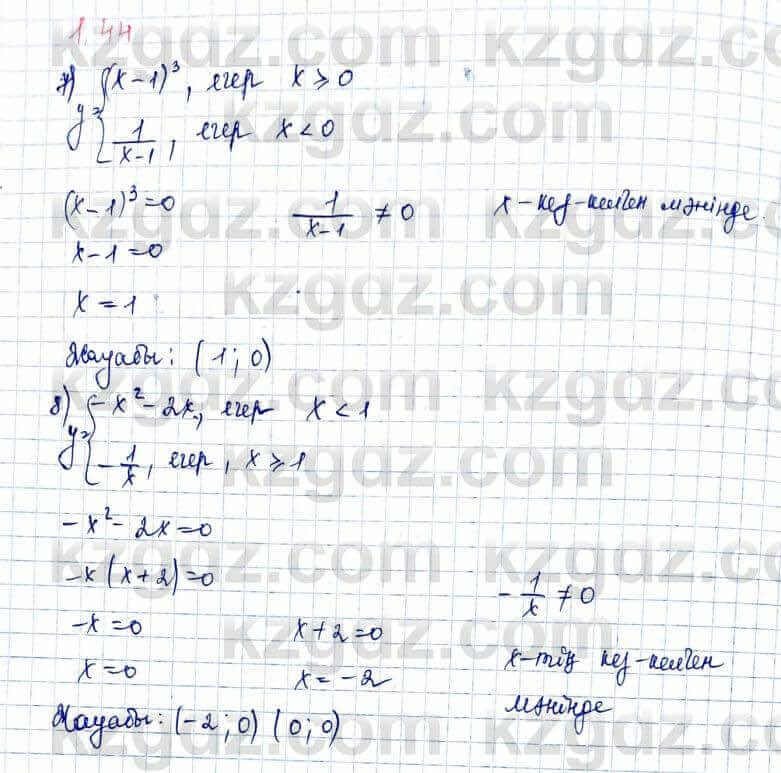 1.44
7) y = { (x-1)³, егер x ⩾ 0
1/(x-1), егер x < 0
(x-1)³=0    1/(x-1) ≠ 0    x-кез-келген мәнінде.
x-1=0
x = 1
Жауабы: (1; 0)
8) y = { -x²-2x, егер x < 1
-1/x, егер, x ⩾ 1
-x²-2x=0
-x(x+2)=0    -1/x ≠ 0
-x=0    x+2=0    x-тің кез-келген
x=0    x=-2    мәнінде
Жауабы: (-2; 0) (0; 0)
kzgdz.com